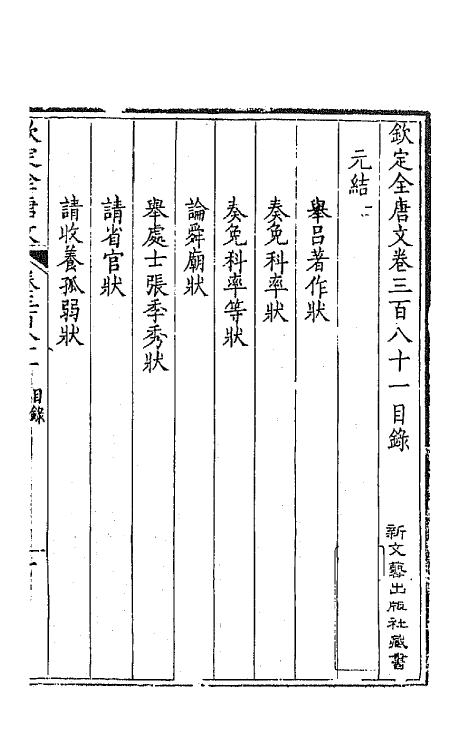 欽定全唐文卷三百八十一目錄
新文藝出版社藏書
元結二
舉呂著作狀
奏免科率狀
奏免科率等狀
論舜廟狀
舉處士張季秀狀
請省官狀
請收養孤弱狀
欽定全唐文 卷三百八十一 目錄 一